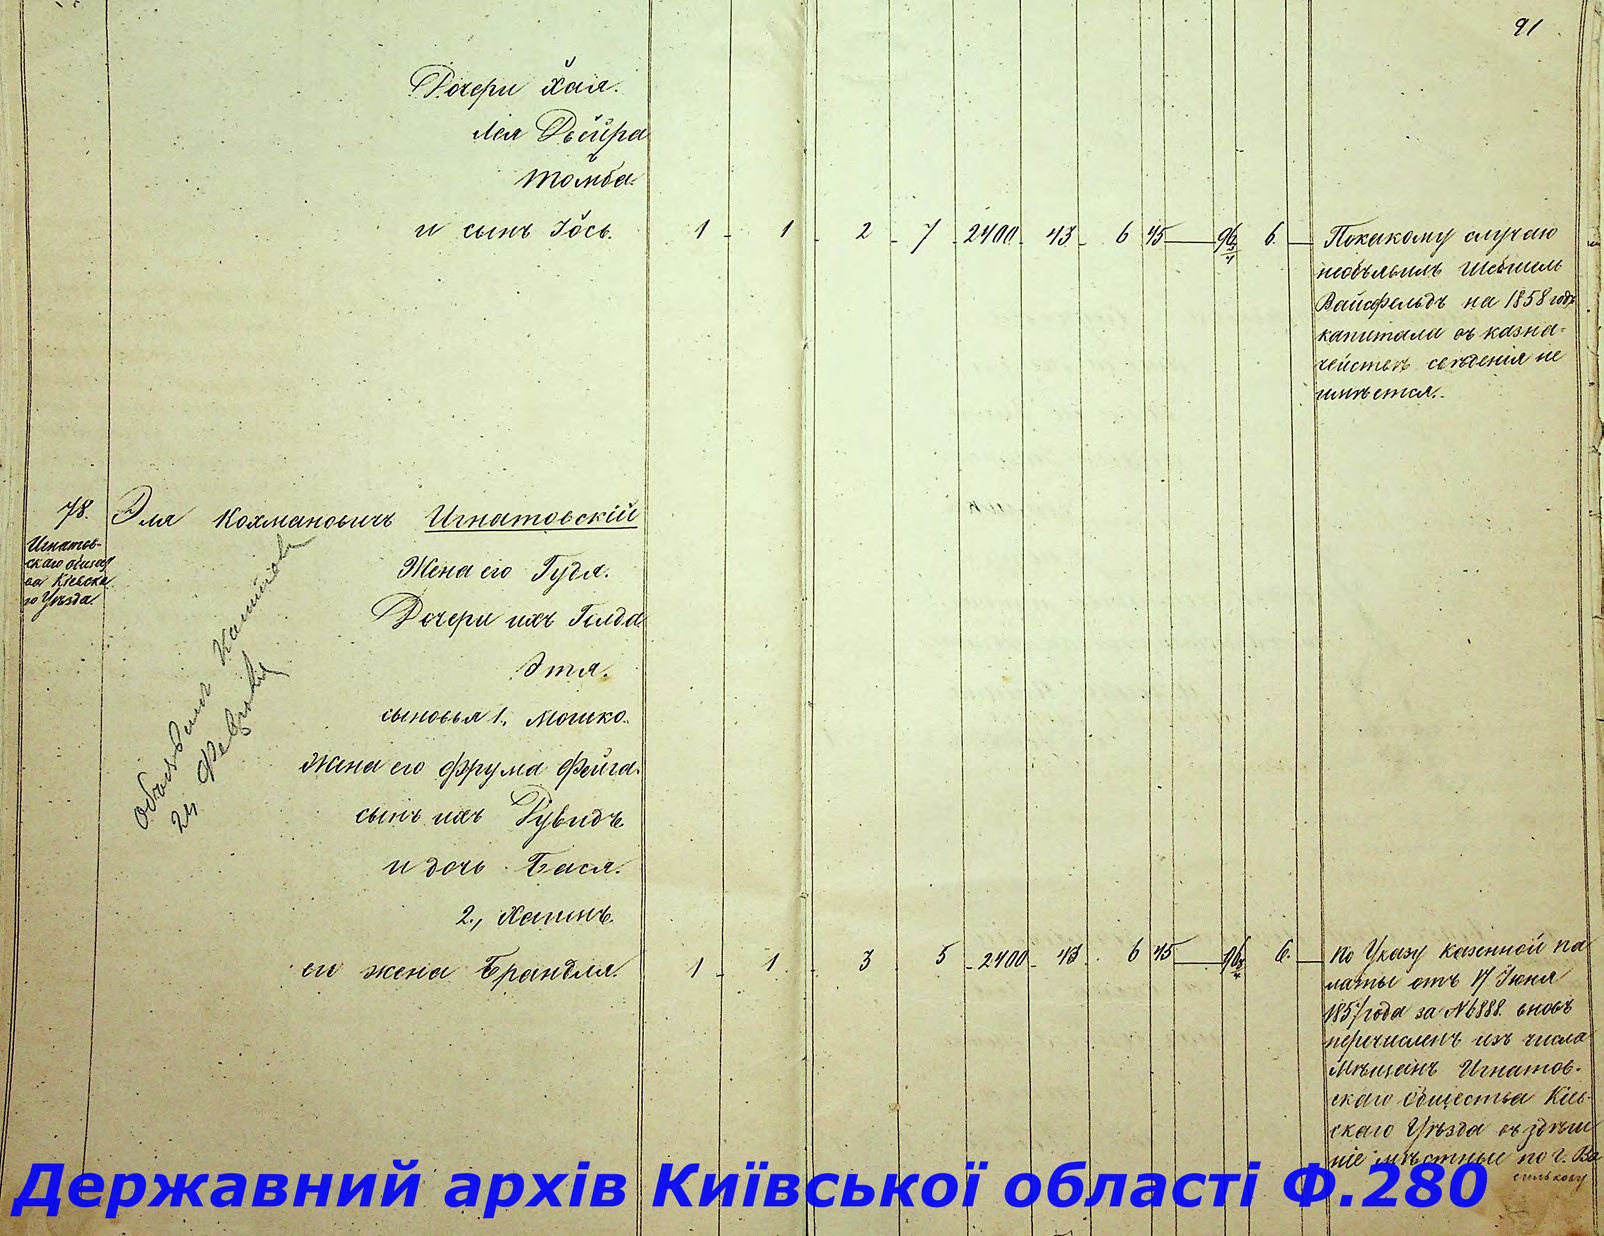 91
Дочери Хая.
Лея Двейра
Томба.
и сынъ Іось. 1 - 1 - 2 - 7 - 2400 - 43 - 6 45 — 96 6. —
Покакому случаю
необъявилъ
Вайсфельдъ на 1858 годъ
капитала въ казна-
чействѣ свѣденія не
имѣется.
78. Эля Кохмановичъ Игнатовскій
Игнатов-
скаго
Кіевска
го Уѣзда.
Жена его Гудя.
Дочери ихъ Голда
Этя.
сыновья 1, Мошко.
Жена его Фрума Фейга.
сынъ ихъ Рувидъ
и дочь Бася.
2, Хаимъ.
его жена Брандля. 1 - 1 3 5 - 2400 - 43 6 45 — 96 6. —
объявилъ
24 Февраля
По Указу Казенной Па
латы отъ 17 Іюня
1857 года за № 6888. вновь
перечисленъ изъ числа
Мѣщанъ Игнатов-
скаго Общества Кіев-
скаго Уѣзда въ здѣш
ніе мѣстные по г. Ва
силькову
Державний архів Київської області Ф.280